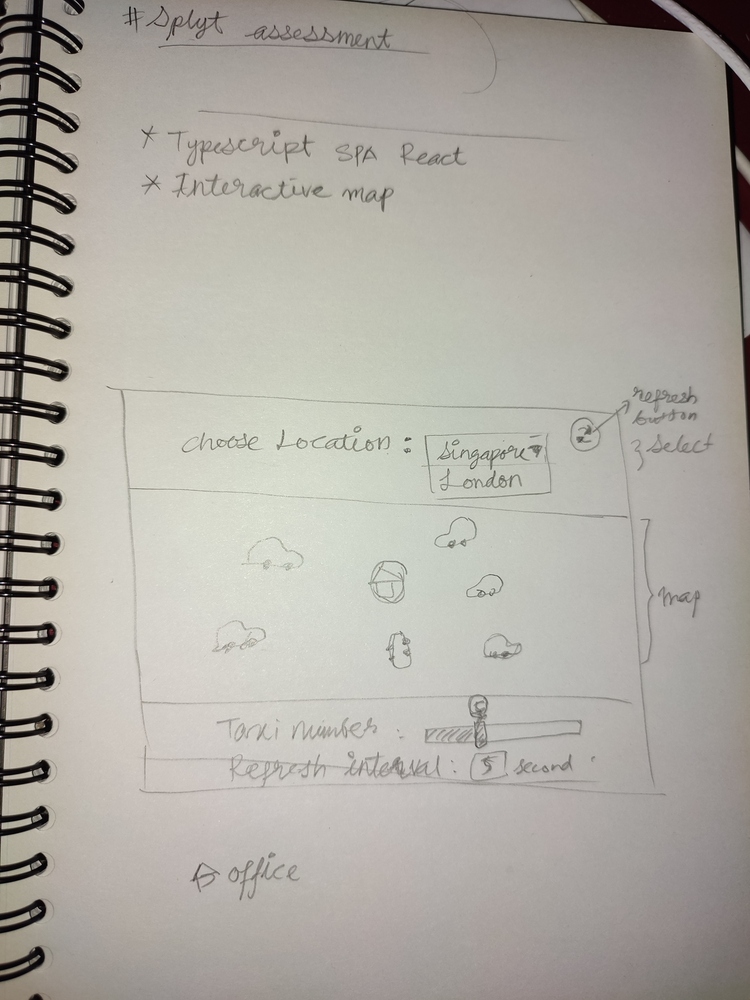 # Splyt assessment
* Typescript SPA React
* Interactive map
refresh
button
Choose Location : Singapore
} Select
London
map
Taxi number :
Refresh interval : 5 second
office